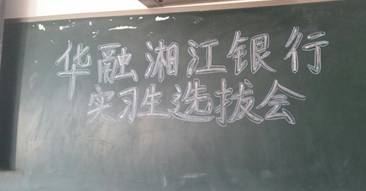 华融湘江银行
实习生选拔会